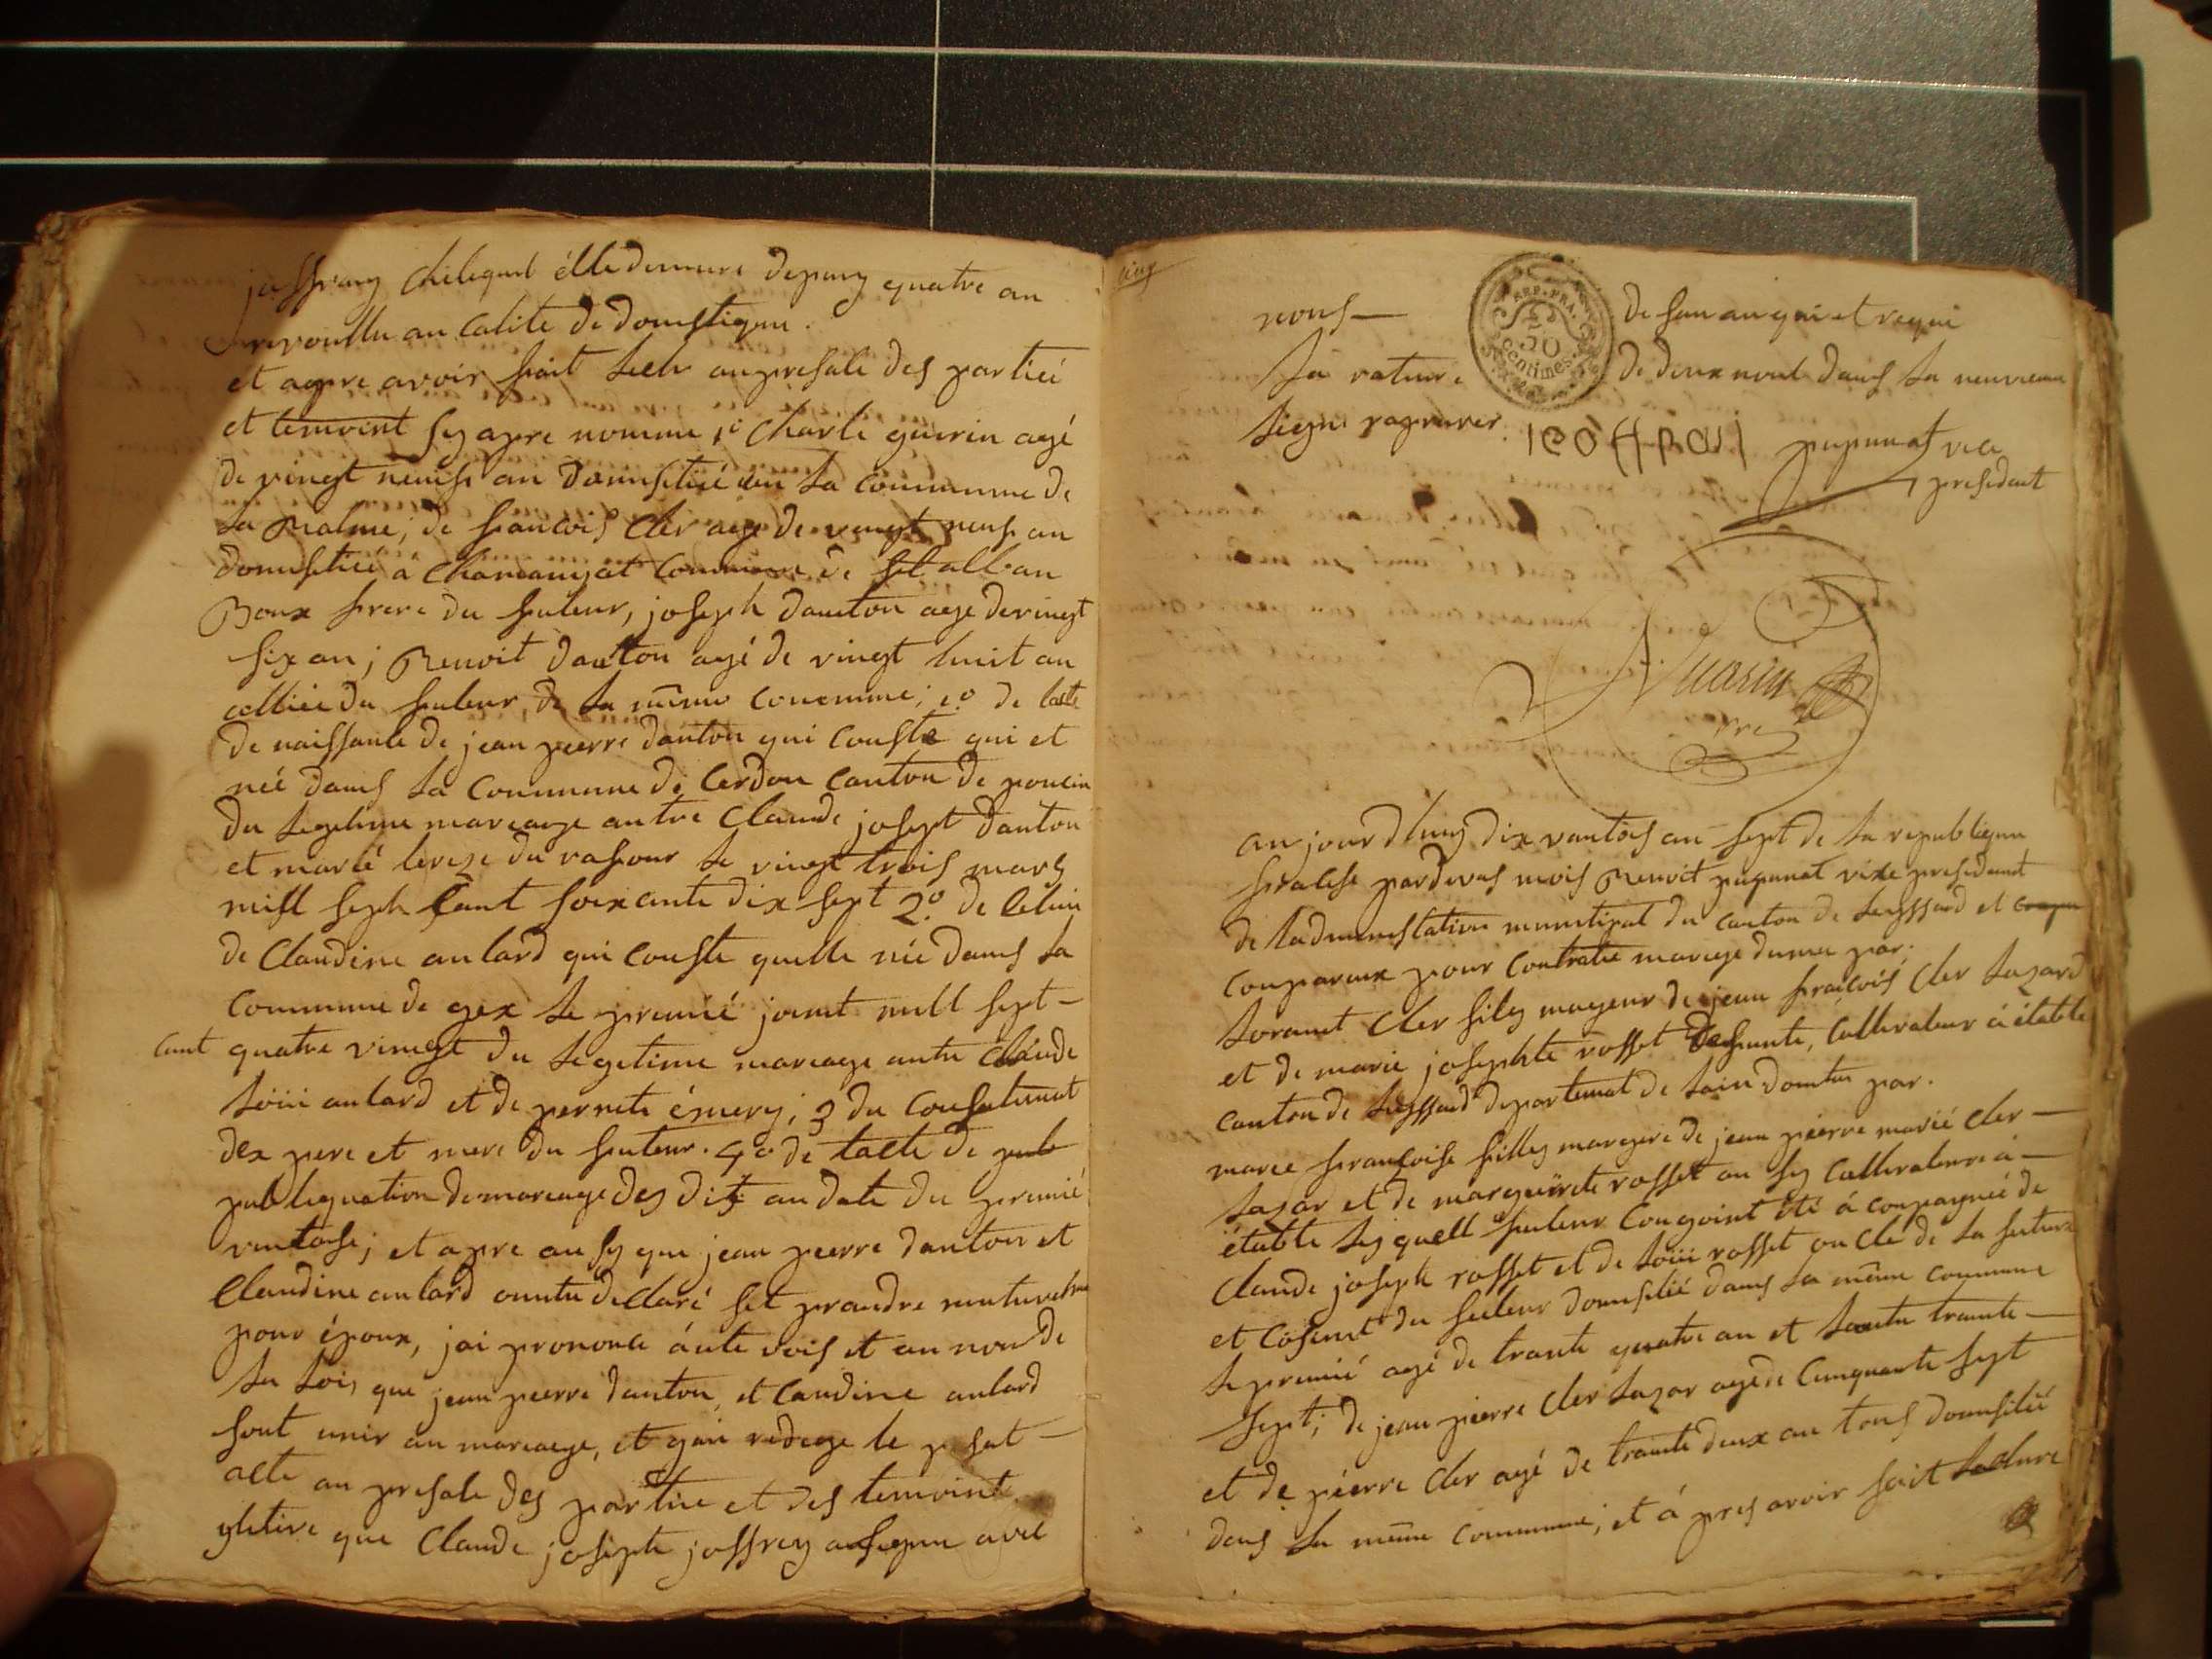 joffray chélequel élle demure depuy quatre an
revoullu an calite de domstiqu.
et apre avoir fait lectr anpresale des partieé
et temoint sy apre nomme 1° Charle guerin agé
de vingt neufs an domstiée an la commune de
la Balme, de francois Cler age de vingt neufs an
domstiée à Chamaniat commune de St alban
Boux frere du futeur, joseph danton age de vingt
six an; Benoit danton agé de vingt huit an
du futeur de la mème conemme; 1° de lacte
de naissante de jean pierre danton qui conste qui et
néé dans la commune de Cerdon Canton de poncin
du legetime mareage antre Claude josept danton
et marié tereze du rafour le vingt trois mars
mill seph Cant soixante dix sept 2° de lelui
de Claudine aulard qui conste quelle néé dans la
commune de gex le premié jount mill sept-
cant quatre vingt du legetime mareage antre Claude
loiii aulard et de pernete émery; 3 du Consetemat
dex pere et mere du futeur. 4° de lacte de pub
publiquation de mareage des dit an date du premié
vantose; et apre au sy que jean pierre danton et
Claudine aulard onntu declaré set prandre mutuvelme
pour époux, jai prononce áute vois et au non de
la loi, que jean pierre danton, et Claudine aulard
sont unir an mareage, et gai redege le p sat-
acte an presale des partiee et des temoint
que Claude josepte joffrey a signu avec
cinq
nous-
REP. FRA.
50
Centimes.
de san an qui et requi
la rature
de deux nout dans la
signé raprover
ieoffRai
pupunat vice
presedant
Guarin
an jour dhuy dix vantôs an sept de la republiqu
fracese pardevas mois Benoit pupunat vixe presedant
de ladmenestation munitipal du canton de leyssard et
conparaux pour Contratre mareage dunne par.
lorant Cler filz mageur de jean fracois Cler lazard
et de marie josephte rosset defunte, Cultivateur à étable
canton de leyssard departemat de lain domtu par.
maree francoise filley margere de jean pierre marié Cler-
lazar et de marguirete rosset au sy Cultivateur à-
étable les quell futeur Congoint été à conpagnéé de
Claude joseph rosset et de loiii rosset oncle de la future
et cosint du futeur domsilié dans la même commune
le premié agé de trante quatre an et trante-
sept; de jean pierre Cler lazar age de Cinquante sept
et de pierre Cler agé de trante deux an tous domsilié
dans la même commune; et à pres avoir fait ledure